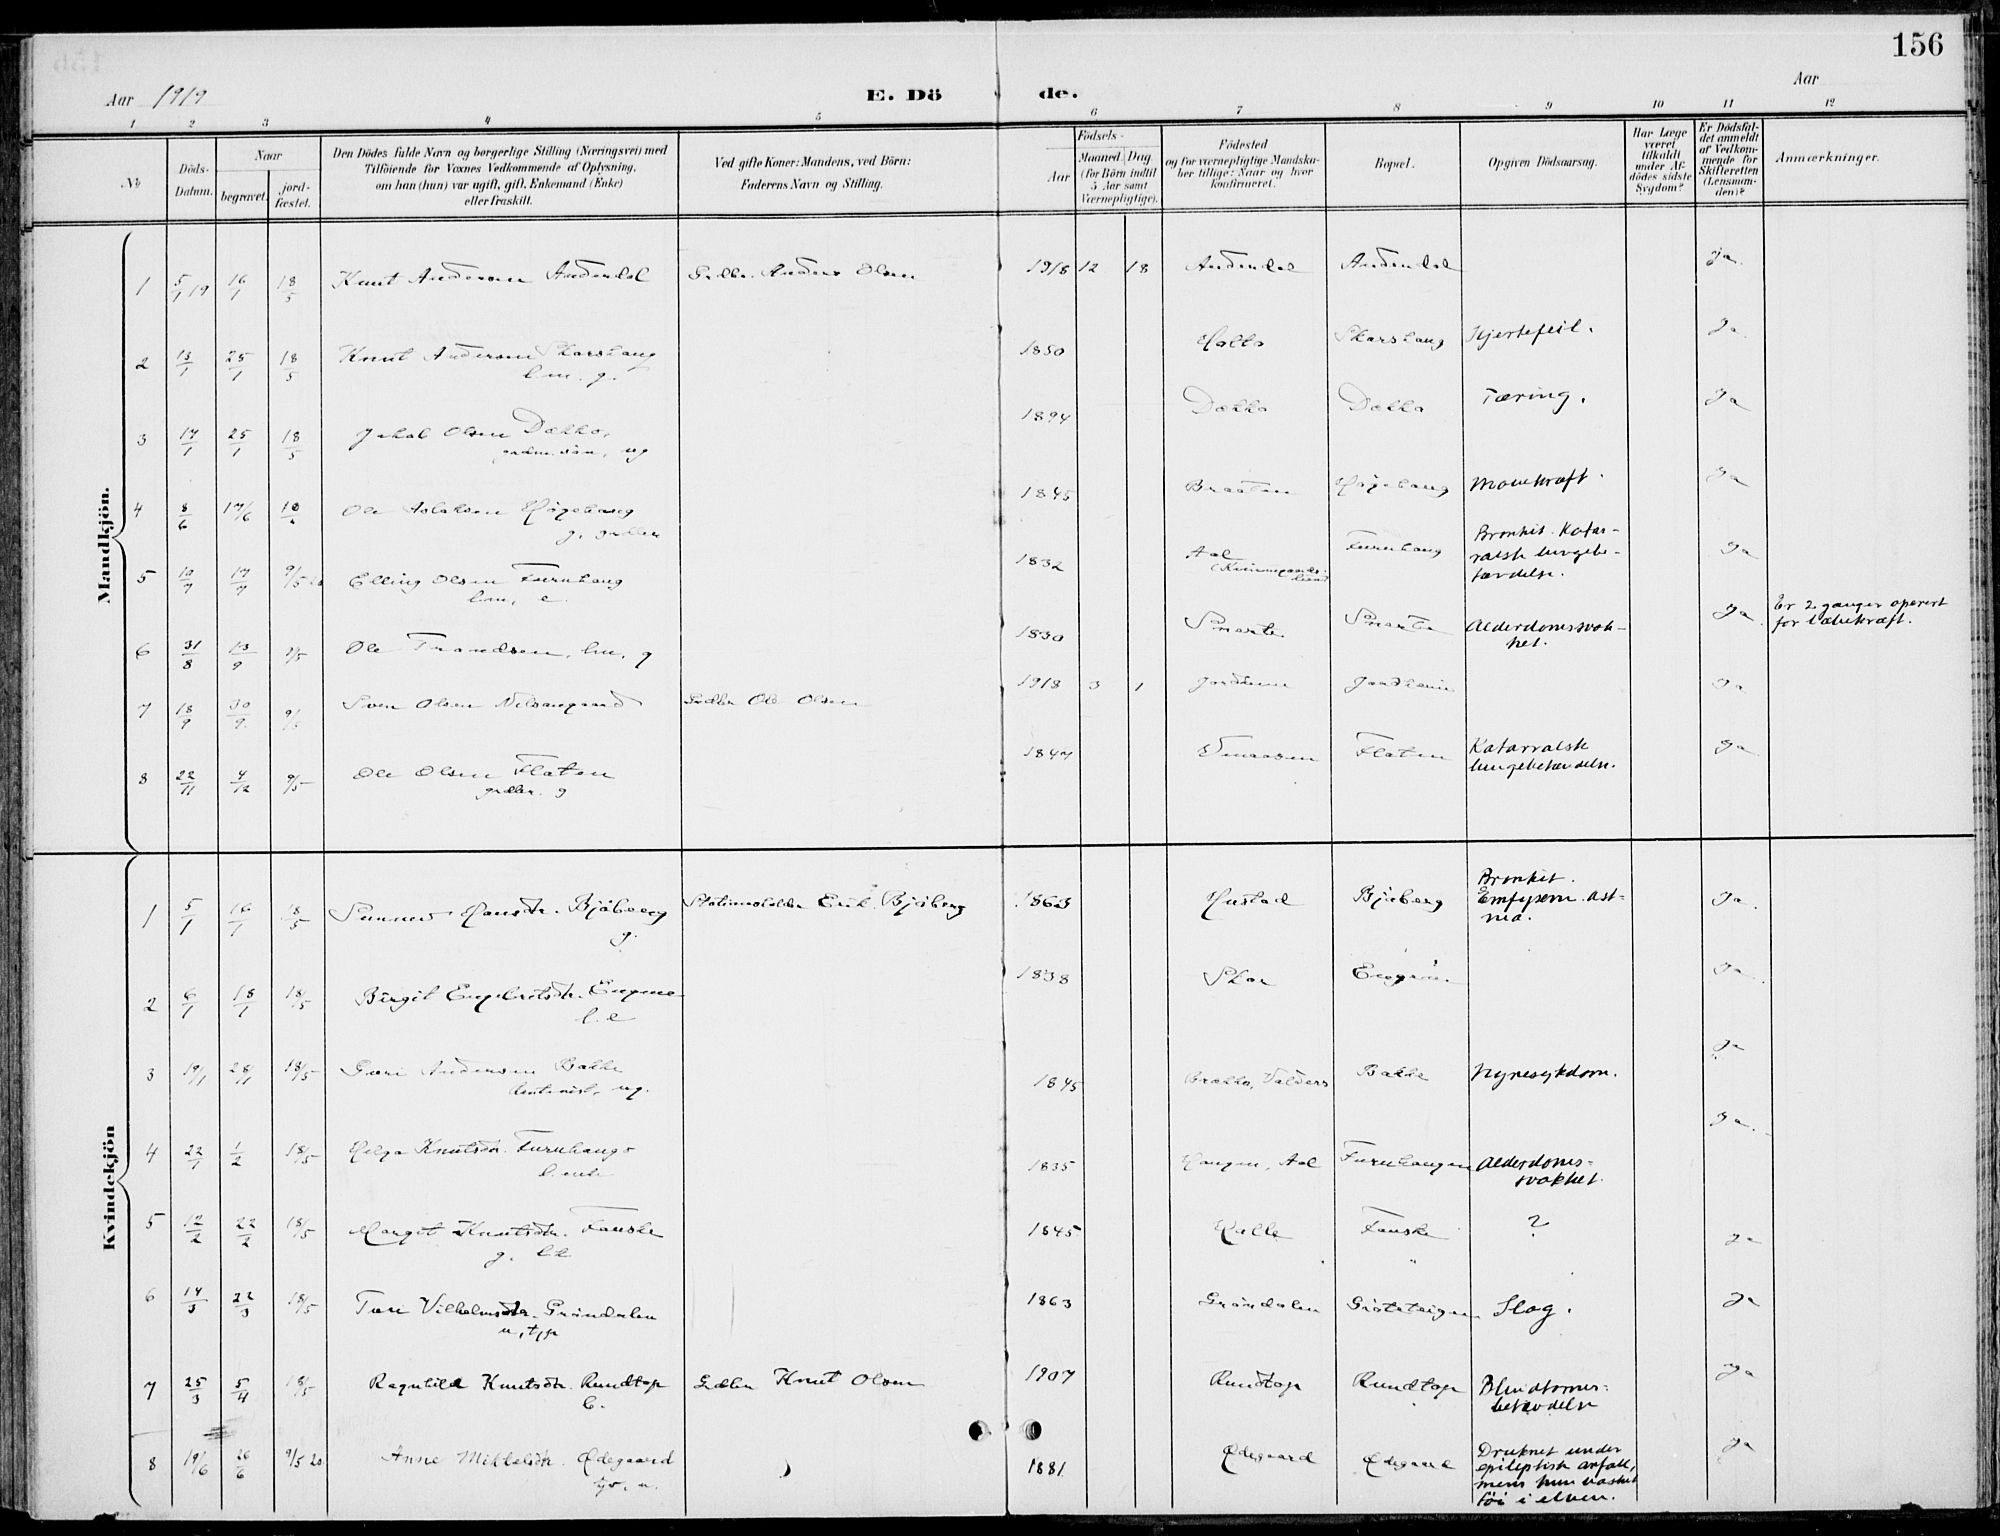 156
Aar 1919
E. Dö de.
Aar
1 2 3 4 5 6 7 8 9 10 11 12
№
Döds-Datum.
Naar
begravet.
jord-fæstet.
Den Dödes fulde Navn og borgerlige Stilling (Næringsvei) med
Tilföiende for Voxnes Vedkommende af Oplysning,
om han (hun) var ugift, gift, Enkemand (Enke)
eller fraskilt.
Ved gifte Koner: Mandens, ved Börn:
Faderens Navn og Stilling.
Födsels-
Aar
Maaned. Dag.
(for Börn indtil
5 Aar samt
Værnepligtige).
Födested
og for værnepligtige Mandska-
ber tillige: Naar og hvor
konfirmeret.
Bopæl.
Opgiven Dödsaarsag.
Har Læge
været
tilkaldt
under Af-
dödes sidste
Sygdom?
Er Dödsfal-
det anmeldt
af Vedkom-
mende for
Skifteretten
(Lensman-
den)?
Anmærkninger.
Mandkjön.
1 5/1 19 16/1 18/5 Knut Andersen Andendal Gdbr. Anders Olsen 1918 12 18 Andendal Andendal ja.
2 13/1 25/1 18/5 Knut Andersen Skarshaug 1850 Holto Skarshaug Hjertefeil. Ja
b.m. g.
3 17/1 25/1 18/5 Jakob Olsen Dokko, 1894 Dokko Dokko Tæring. Ja
gaardm. sön, ug
4 8/6 17/6 Ole Aslaksen Högehaug 1845 Braaten Högehaug Mavekræft. Ja
g. grdbr
5 10/7 17/7 9/5 20 Elling Olsen Furuhaug 1832 Aal Furuhaug Bronkit. Katar-
ralsk lungebe-
tændelse. Ja
6 31/8 13/9 Ole Trondsen, bm, g 1830 Snerte Snerte Alderdomssvak-
het. Ja. Er 2 ganger operert
for læbekræft.
7 18/9 30/9 Sven Olsen Nilsengaard Grdbr Ole Olsen 1918 3 1 Jordheim Jordheim Ja
8 22/11 4/12 9/5 Ole Olsen Flaten 1847 Flaten Katarralsk
lungebetændelse. Ja
grdbr. g
Kvindekjön
1 5/1 16/1 18/5 Sunnev Hansdtr. Bjöberg Stationsholder Erik Bjöberg 1863 Hustad Bjöberg Bronkit.
Emfysem. Ast-
ma. Ja.
g.
2 6/1 18/1 18/5 Birgit Engebretsdtr. Engene 1838 Skor Engene. Ja
l. e
3 19/1 28/11 18/5 Guri Andersen Bakke 1845 Brekko, Valders Bakke Nyresykdom. Ja
4 22/1 1/2 18/5 Helga Knutsdtr. Furuhaug 1835 Haugen, Aal Furuhaugen Alderdoms-
svakhet. Ja.
5 12/2 22/2 18/5 Margit Knutsdtr. Fauske 1845 Halle Fauske ? Ja
6 14/3 22/3 18/5 Turi Vilhelmsdtr. Gröndalen 1863 Gröndalen Grötteigen Slag. Ja
u, tjp
7 25/3 5/4 18/5 Ragnhild Knutsdtr. Rundtop Grdbr Knut Olsen 1907 Rundtop Rundtop Blindtarms-
betændelse Ja
b.
8 19/6 26/6 9/5 20 Anne Mikkelsdtr. Ödegaard 1881 Ödegaard Ödegaard Druknet under
epileptisk anfall,
mens hun vasket
töi i elven. Ja